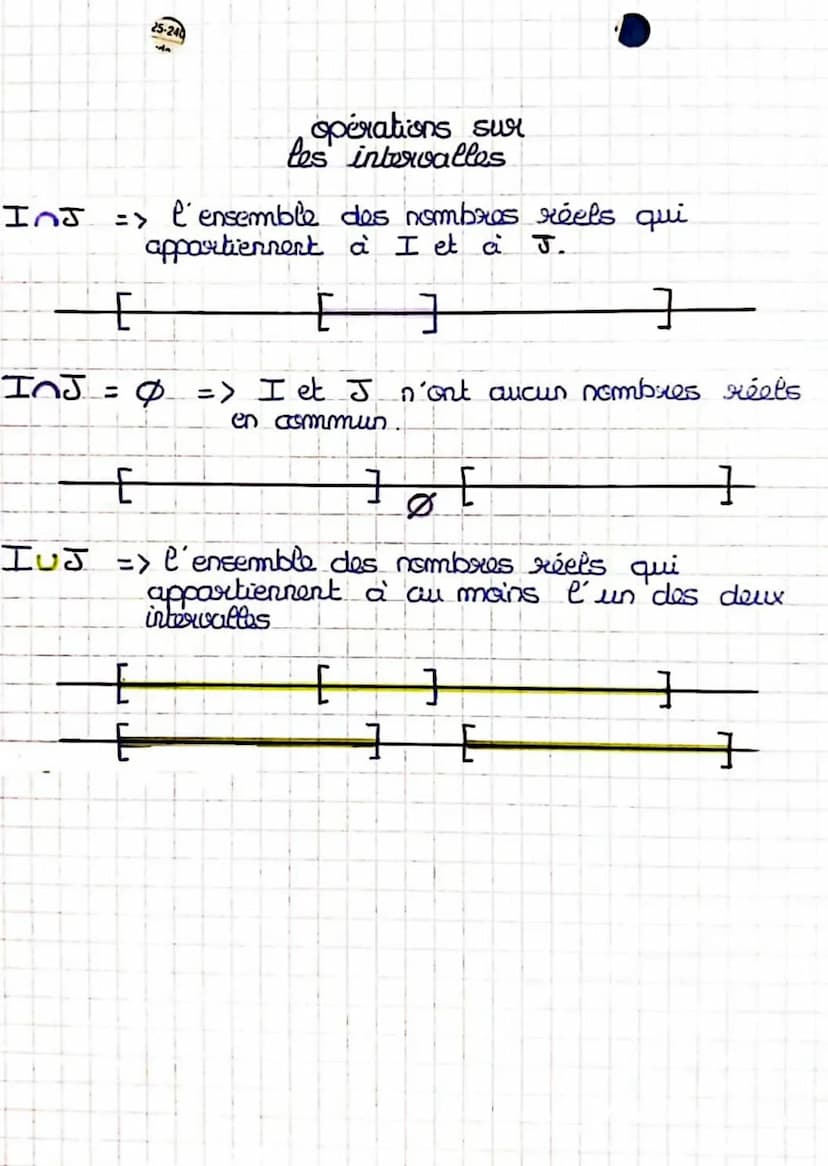 25-240
opérations sur
les intervalles
I∩J => l'ensemble des nombres réels qui
appartiennent à I et à J.
[ [ ] ]
I∩J = ∅ => I et J n'ont aucun nombres réels
en commun.
[ ] ∅ [ ]
I∪J => l'ensemble des nombres réels qui
appartiennent à au moins l'un des deux
intervalles
[ [ ] ]
[ ] [ ]